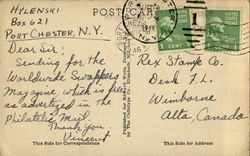 HYLENSKI
BOX 621
PORT CHESTER, N.Y.
POST CARD
1
1 CENT
Dear Sir:
Sending for the
Worldwide Swappers
Magazine, which is free
as advertized in the
Philatelic Mail.
Thank you.
Vincent
Rex Stamp Co.
Desk F.L.
Wimborne
Alta, Canada
This Side for Correspondence
This Side for Address